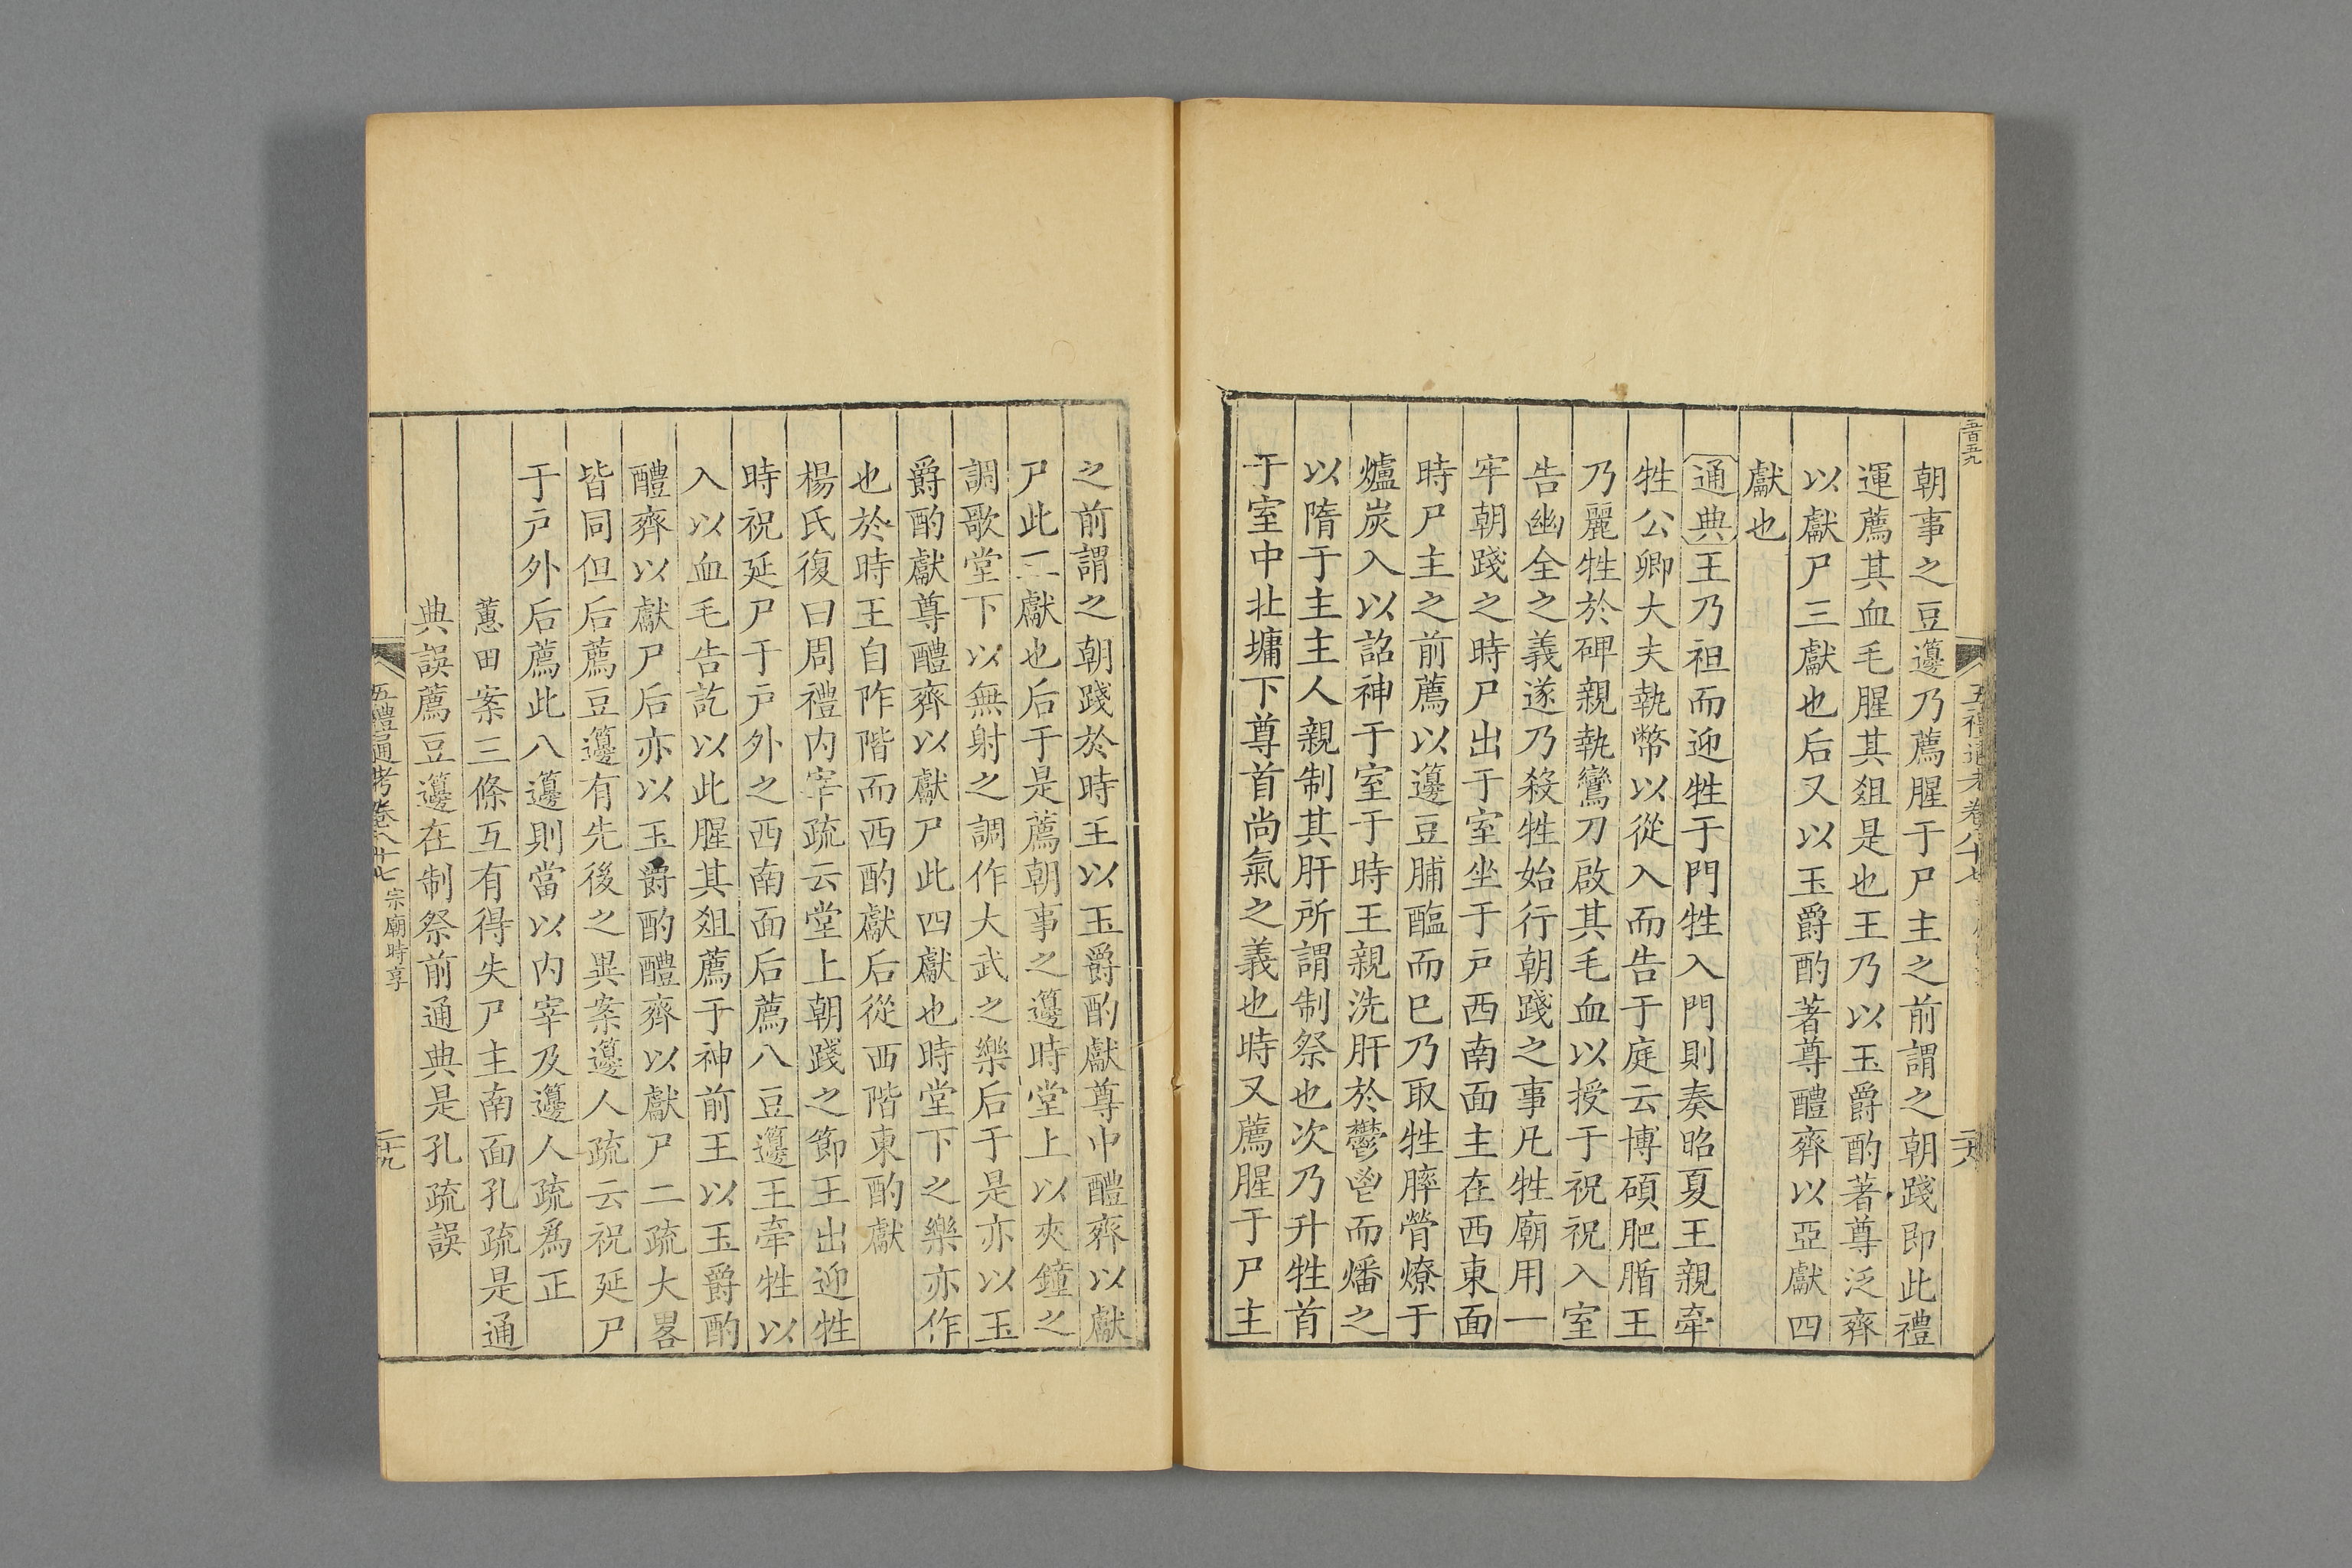 五百五九
五禮通考卷八十七
二十八
朝事之豆籩乃薦腥于尸主之前謂之朝踐即此禮
運薦其血毛腥其俎是也王乃以玉爵酌著尊泛齊
以獻尸三獻也后又以玉爵酌著尊醴齊以亞獻四
獻也
通典王乃袒而迎牲于門牲入門則奏昭夏王親牽
牲公卿大夫執幣以從入而告于庭云博碩肥腯王
乃麗牲於碑親執鸞刀啟其毛血以授于祝祝入室
告幽全之義遂乃殺牲始行朝踐之事凡牲廟用一
牢朝踐之時尸出于室坐于戶西南面主在西東面
時尸主之前薦以籩豆脯醢而已乃取牲膟膋燎于
爐炭入以詔神于室于時王親洗肝於鬱鬯而燔之
以隋于主主人親制其肝所謂制祭也次乃升牲首
于室中北墉下尊首尚氣之義也時又薦腥于尸主
之前謂之朝踐於時王以玉爵酌獻尊中醴齊以獻
尸此三獻也后于是薦朝事之籩時堂上以夾鐘之
調歌堂下以無射之調作大武之樂后于是亦以玉
爵酌獻尊醴齊以獻尸此四獻也時堂下之樂亦作
也於時王自阼階而西酌獻后從西階東酌獻
楊氏復曰周禮內宰疏云堂上朝踐之節王出迎牲
時祝延尸于戶外之西南面后薦八豆籩王牽牲以
入以血毛告訖以此腥其俎薦于神前王以玉爵酌
醴齊以獻尸后亦以玉爵酌醴齊以獻尸二疏大畧
皆同但后薦豆籩有先後之異案籩人疏云祝延尸
于戶外后薦此八籩則當以內宰及籩人疏爲正
蕙田案三條互有得失尸主南面孔疏是通
典誤薦豆籩在制祭前通典是孔疏誤
五禮通考卷八十七 宗廟時享
二十九